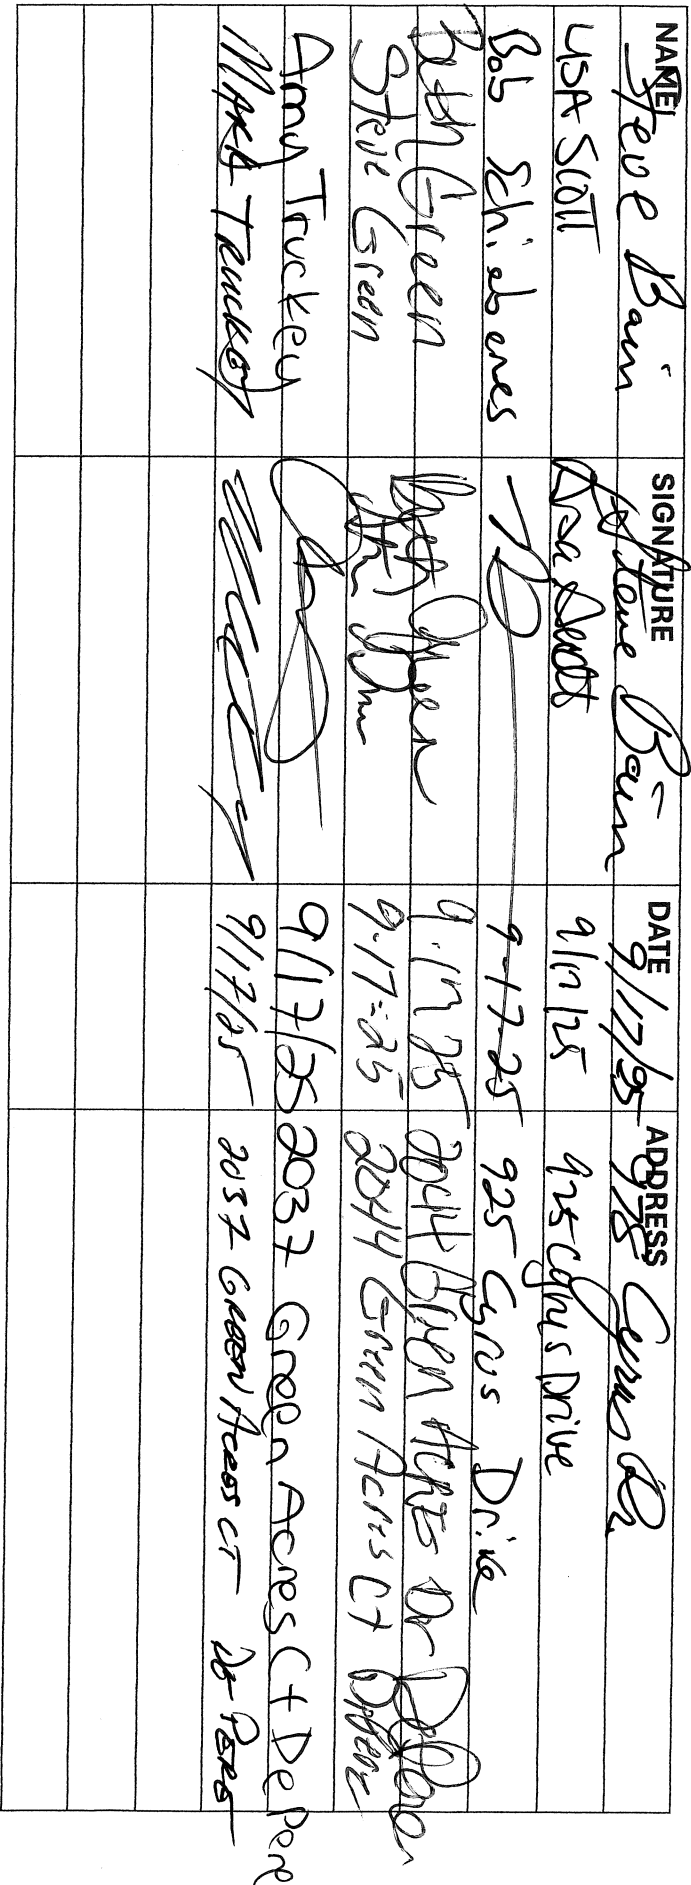 NAME SIGNATURE DATE ADDRESS
Steve Bain Steve Bain 9/17/25 978 Cyrus Dr.
LISA SCOTT Lisa Scott 9/17/25 925 Cyrus Drive
Bob Schiebenes 9-17-25 925 Cyrus Drive
Beth Green Beth Green 9.17.25 2044 Green Acres Dr DePere
Steve Green 9-17-25 2044 Green Acres Ct Depere
Amy Truckey 9/17/25 2037 Green Acres Ct De Pere
MARK TRUCKEY 9/17/25 2037 GREEN ACRES CT DE PERE